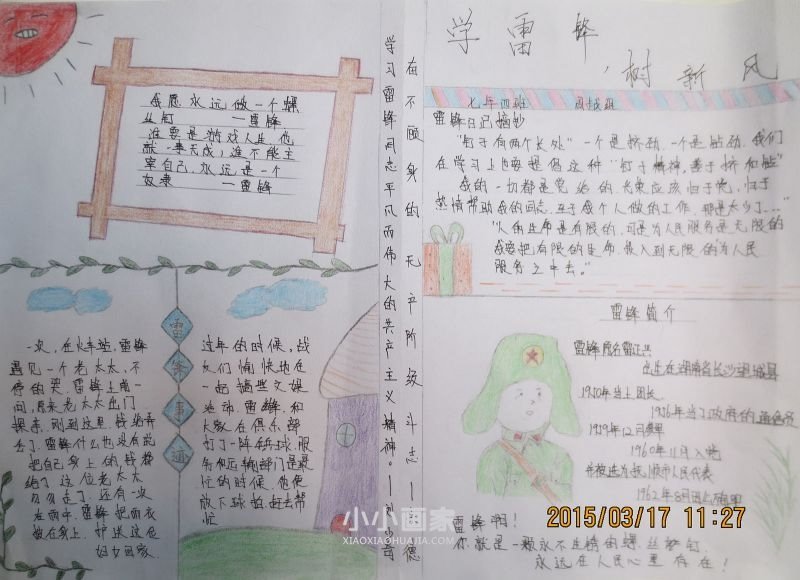 学雷锋
树新风
七年四班
雷锋日记摘抄
"钉子有两个长处"一个是挤劲.一个是钻劲.我们
在学习上也要提倡这种"钉子精神,善于挤和钻"
我的一切都是党给的.光荣应该归于党,归于
热情帮助我的同志.至于我个人做的工作.那是太少了……"
"人的生命是有限的.可是为人民服务是无限的
我要把有限的生命.投入到无限的为人民
服务之中去。"
雷锋简介
雷锋原名雷正兴
出生在湖南省长沙望城县
1950年当上团长
1956年当了政府的通信员
1959年12月参军
1960年11月入党
并被选为抚顺市人民代表
雷锋啊!
你就是一颗永不生锈的螺丝钉.
永远在人民心里存在!
我愿永远做一个螺
丝钉 —雷锋
谁要是游戏人生他
就一事无成,谁不能主
宰自己,永远是一个
奴隶 —雷锋
奋不顾身的无产阶级斗志
学习雷锋同志平凡而伟大的共产主义精神。
雷
锋
事
迹
一次,在火车站,雷锋
遇见一个老太太,不
停的哭.雷锋上前一
问,原来老太太出门
探亲,刚到这里钱给弄
丢了.雷锋什么也没有说
把自己身上的钱都
给了这位老太太
匆匆走了.还有一次
在雨中.雷锋把雨衣
披在身上.护送这位
妇女回家.
过年的时候,战
友们愉快地在
一起搞些文娱
活动.雷锋和
大家在俱乐部
打了一阵乒乓球.服
务和运输部门是最
忙的时候.他便
放下球拍.赶去帮
忙
小小画家
XIAOXIAOHUAJIA.COM
2015/03/17 11:27